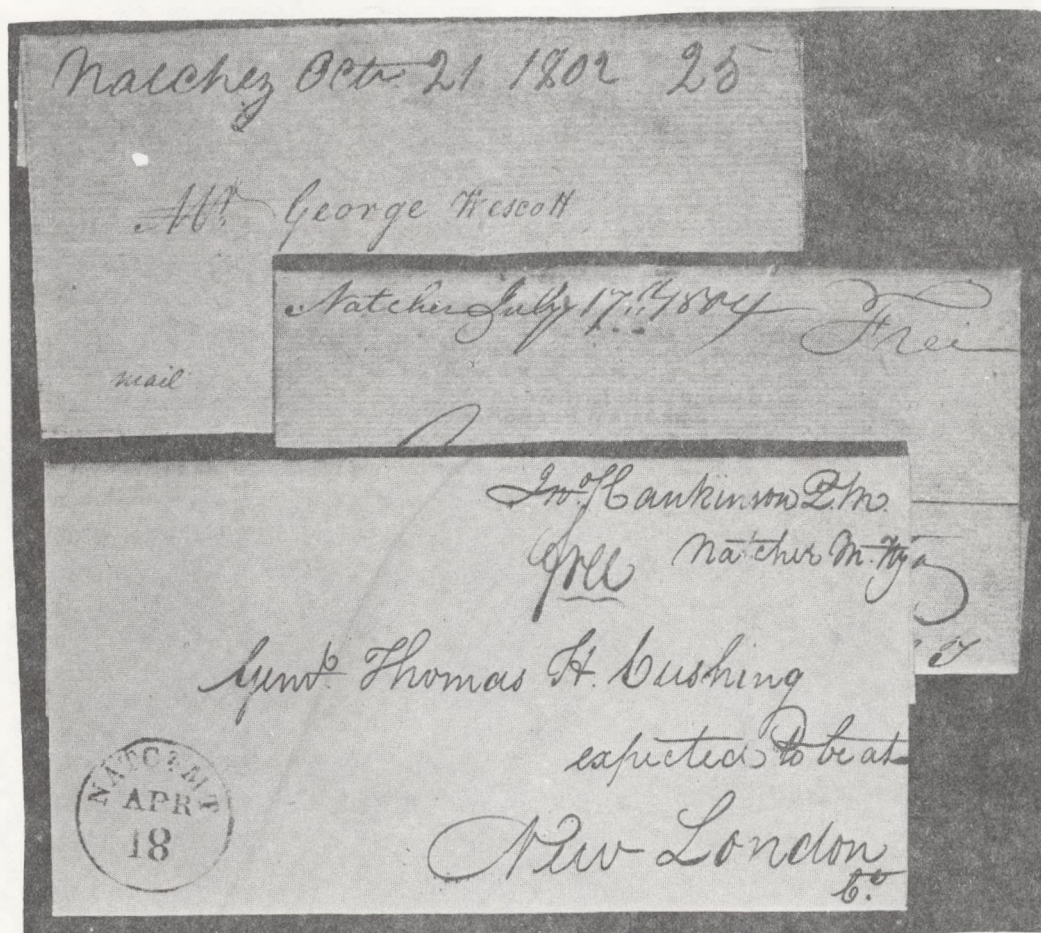 Natchez Octr 21 1802 25
Mr. George Wescott
mail
Natchez July 17th 1804 Free
Jno. Hankinson P.M.
free Natchez M.
Genl. Thomas H. Cushing
expected to be at
New London
NATC? M T
APR
18